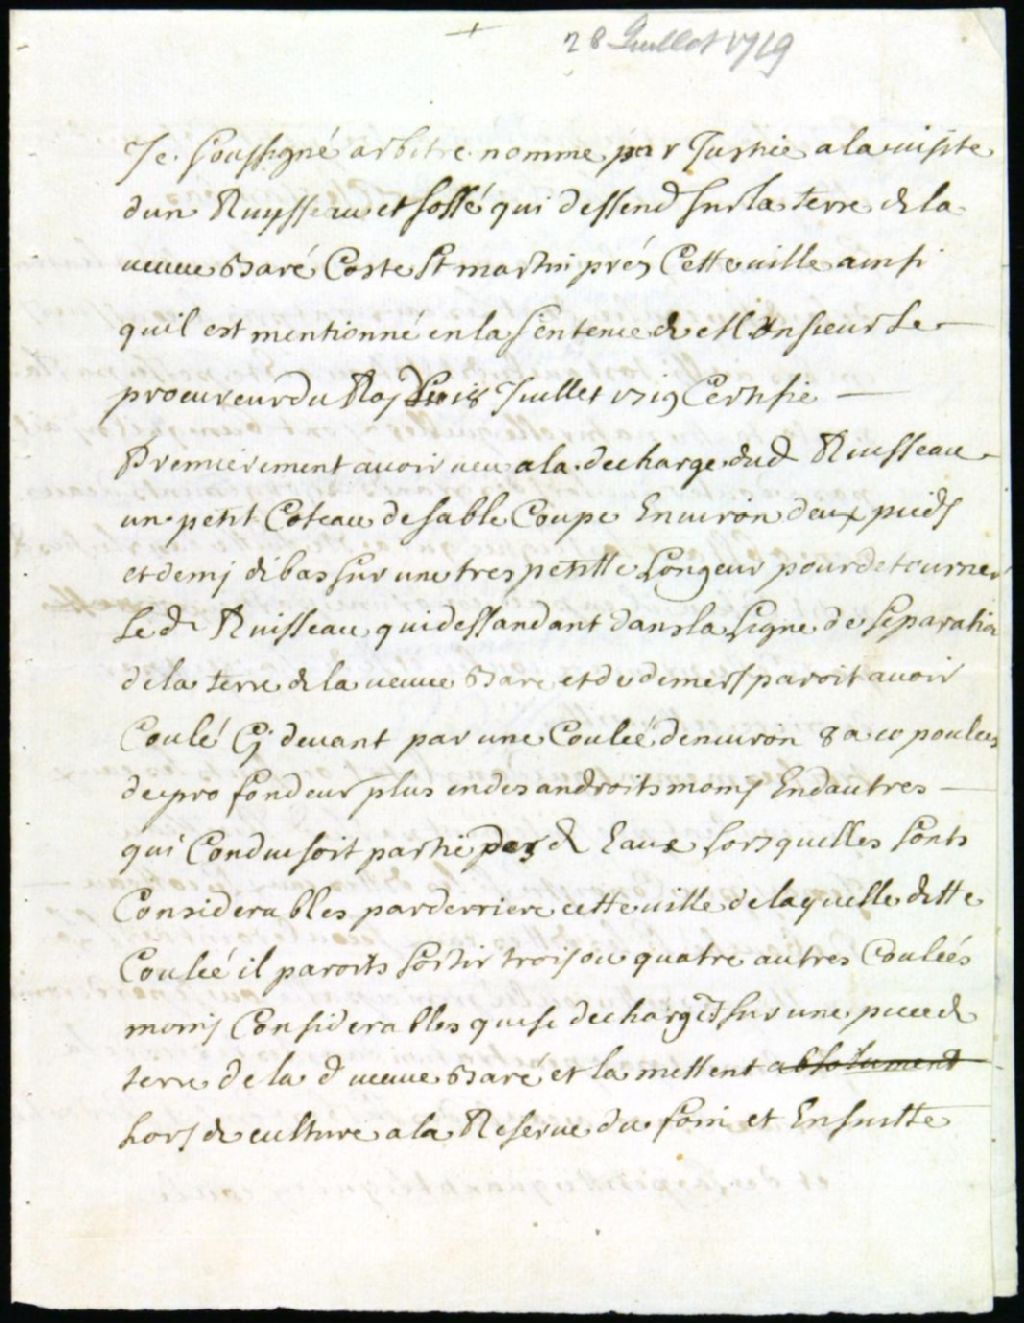 28 Juillet 1719
Je Soussigné arbitre nomme par Justice a la uisitte
dun Ruysseau et fossé qui dessend sur la terre de la
ueuue Baré Coste St martin prés Cette uille ainsi
quil est mentionné en la Sentence de Monsieur Le
procureur du Roy Du 18 Juillet 1719 Certifie
Premierement auoir ueu a la decharge dud Ruisseau
un petit Coteau de sable Coupe Enuiron deux pieds
et demj de bas sur une tres petitte Longeur pour detourner
Le dt Ruisseau qui dessandant dans la Ligne de Separation
de la terre de la ueuue Bare et de demers paroit auoir
Coulé Cj deuant par une Couleé denuiron 8 a 10 poulces
de profondeur plus en des androits moins En dautres
qui Conduisoit partie des d Eaux Lorsquelles Sonts
Considerables par derriere cette uille de laquelle ditte
Couleé il paroits Sortir trois ou quatre autres Couleés
moins Considerables qui se dechargét sur une piece de
terre de la d ueuue Bare et la mettent absolument
hors de culture a la Reserue du foin et Ensuitte